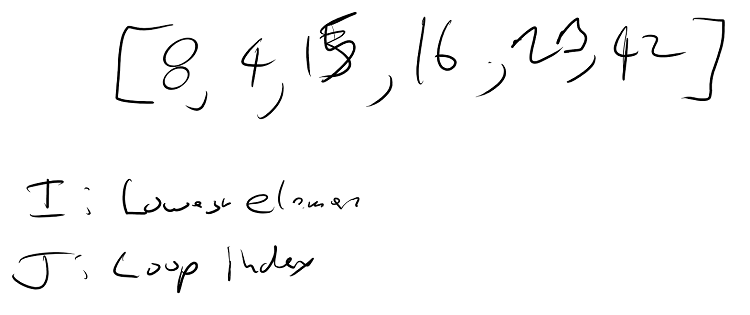 [8, 4, 15, 16, 23, 42]
I: Lowest element
J: Loop Index